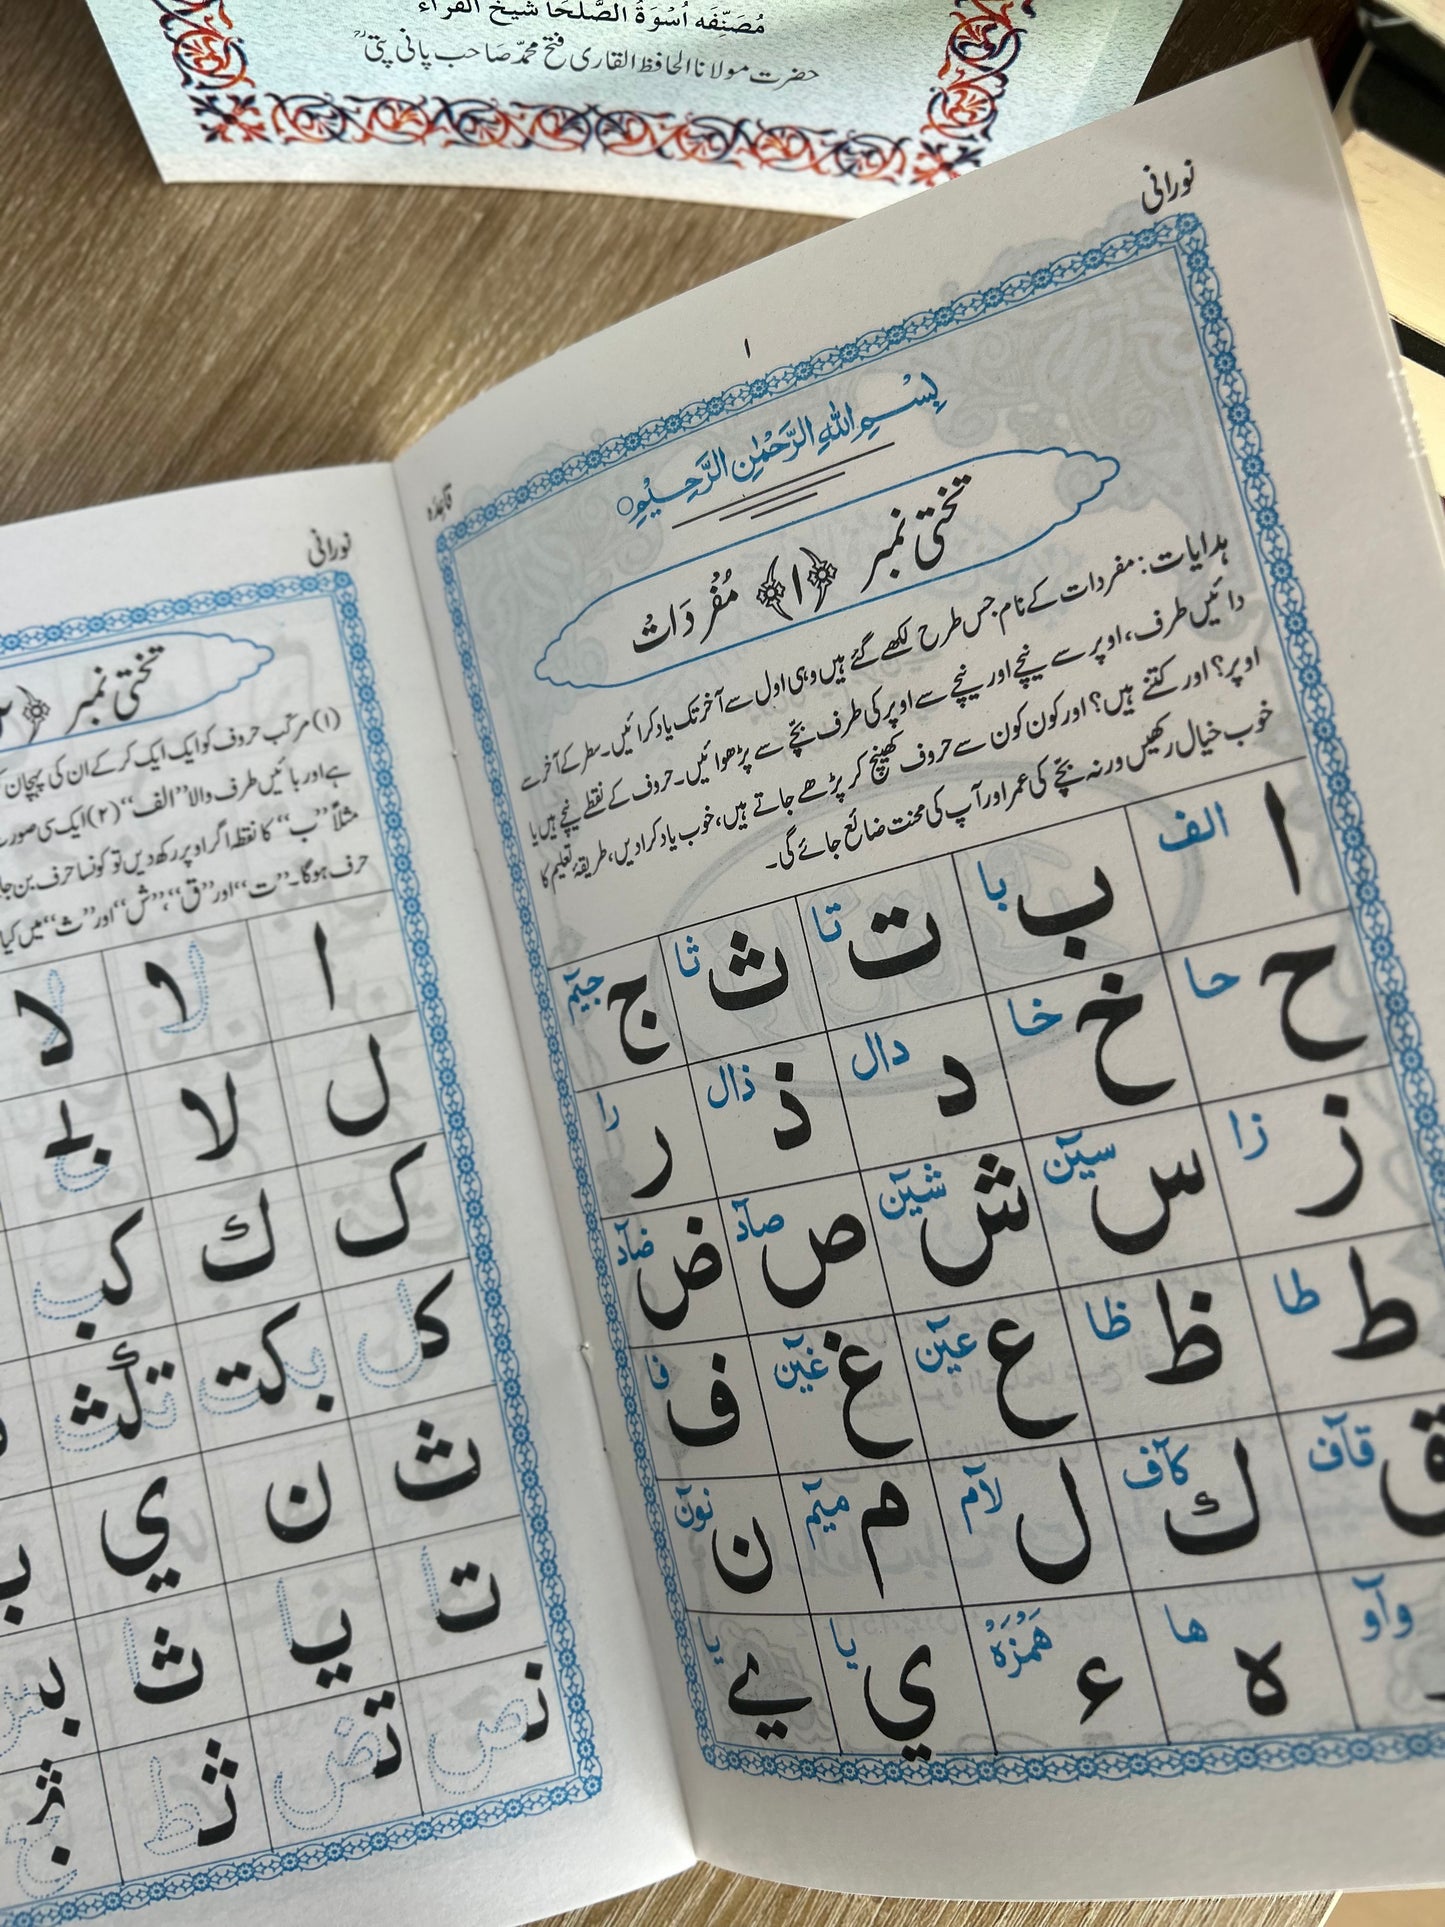 مُصَنِّفَه اُسْوَةُ الصُّلَحَا شَیخُ القُرَّاء
حضرت مولانا الحافظ القاری فتح محمّد صاحب پانی پتیؒ
نورانی
۱
قاعِدَہ
بِسْمِ اللّٰهِ الرَّحْمٰنِ الرَّحِیْمِ
تختی نمبر ﴿۱﴾ مُفْرَدَاتْ
ہدایات: مفردات کے نام جس طرح لکھے گئے ہیں وہی اول سے آخر تک یاد کرائیں۔ سطر کے آخر سے
دائیں طرف، اوپر سے نیچے اور نیچے سے اوپر کی طرف بچّے سے پڑھوائیں۔ حروف کے نقطے نیچے ہیں یا
اوپر؟ اور کتنے ہیں؟ اور کون کون سے حروف کھینچ کر پڑھے جاتے ہیں، خوب یاد کرادیں، طریقۂ تعلیم کا
خوب خیال رکھیں ورنہ بچّے کی عمر اور آپ کی محنت ضائع جائے گی۔
ا الف ب با ت تا ث ثا ج جیٓم
ح حا خ خا د دال ذ ذال ر را
ز زا س سیٓن ش شیٓن ص صآد ض ضآد
ط طا ظ ظا ع عیٓن غ غیٓن ف ف
ق قآف ك کآف ل لآم م میٓم ن نوٓن
وآو ہ ھا ء ھَمْزَہْ ي یا ے یا
نورانی
تختی نمبر
(۱) مرکب حروف کو ایک ایک کر کے ان کی پہچان
ہے اور بائیں طرف والا "الف" (۲) ایک سی صورت
مثلاً "ب" کا نقطہ اگر اوپر رکھ دیں تو کونسا حرف بن
حرف ہوگا۔ "ت" اور "ق"، "ش" اور "ث" میں کیا
ا لا لا
ل لا
ک ك کب
کل کبت
ث ن ي
ت یا ثا
نص تض ثط